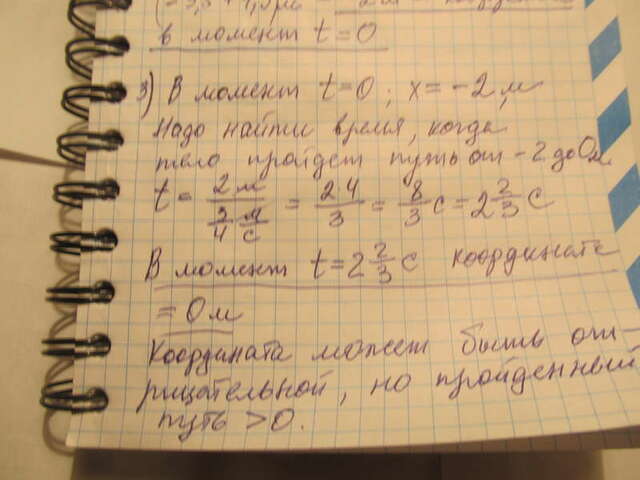 в момент t = 0
3) В момент t=0; x = -2 м
Надо найти время, когда
тело пройдет путь от -2 до 0 м
t = 2м / 3/4 м/с = 2 4 / 3 = 8/3 с = 2 2/3 с
В момент t = 2 2/3 с координата
= 0 м
Координата может быть от-
рицательной, но пройденный
путь > 0.